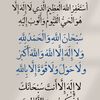 أستغفر الله العظيم الذي لا إله إلا
هو الحي القيوم وأتوب إليه
سبحان الله والحمد لله
ولا إله إلا الله والله أكبر
ولا حول ولا قوة إلا بالله
لا إله إلا أنت سبحانك